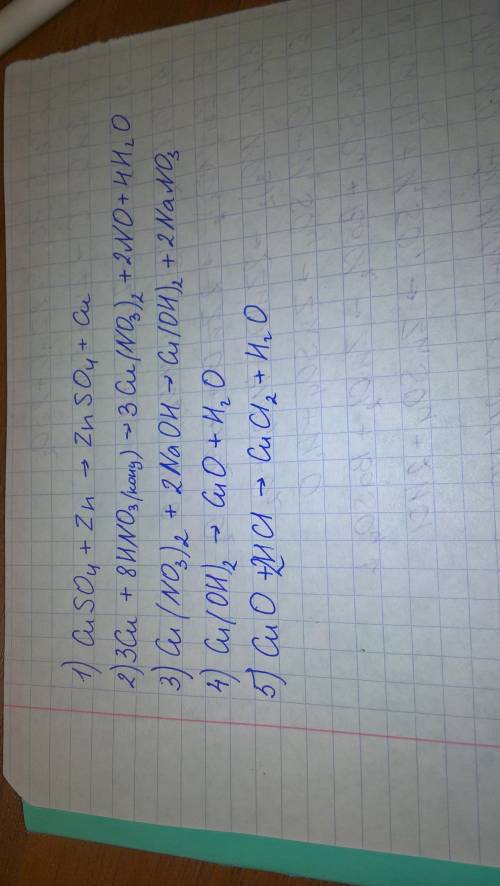 1) CuSO4 + Zn → ZnSO4 + Cu
2) 3Cu + 8HNO3(конц) → 3Cu(NO3)2 + 2NO + 4H2O
3) Cu(NO3)2 + 2NaOH → Cu(OH)2 + 2NaNO3
4) Cu(OH)2 → CuO + H2O
5) CuO + 2HCl → CuCl2 + H2O